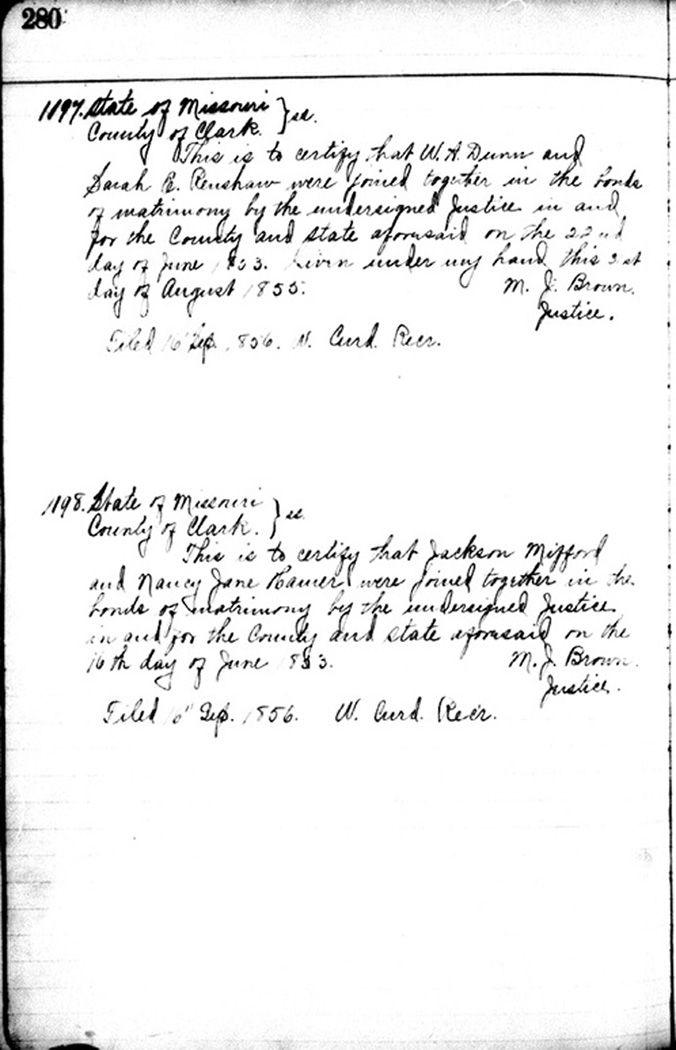 280
1197. State of Missouri } ss.
County of Clark.
This is to certify that W. A. Dunn and
Sarah E. Renshaw were joined together in the bonds
of matrimony by the undersigned Justice in and
for the County and state aforesaid on the 22nd
day of June 1853. Given under my hand this
day of August 1855. M. J. Brown.
Justice.
Filed 16" Sep. 1856. W. Curd. Recr.
1198. State of Missouri } ss.
County of Clark.
This is to certify that Jackson Mifford
and Nancy Jane Hamer were joined together in the
bonds of matrimony by the undersigned Justice
in and for the County and state aforesaid on the
16th day of June 1853. M. J. Brown.
Justice.
Filed Sep. 1856. W. Curd. Recr.